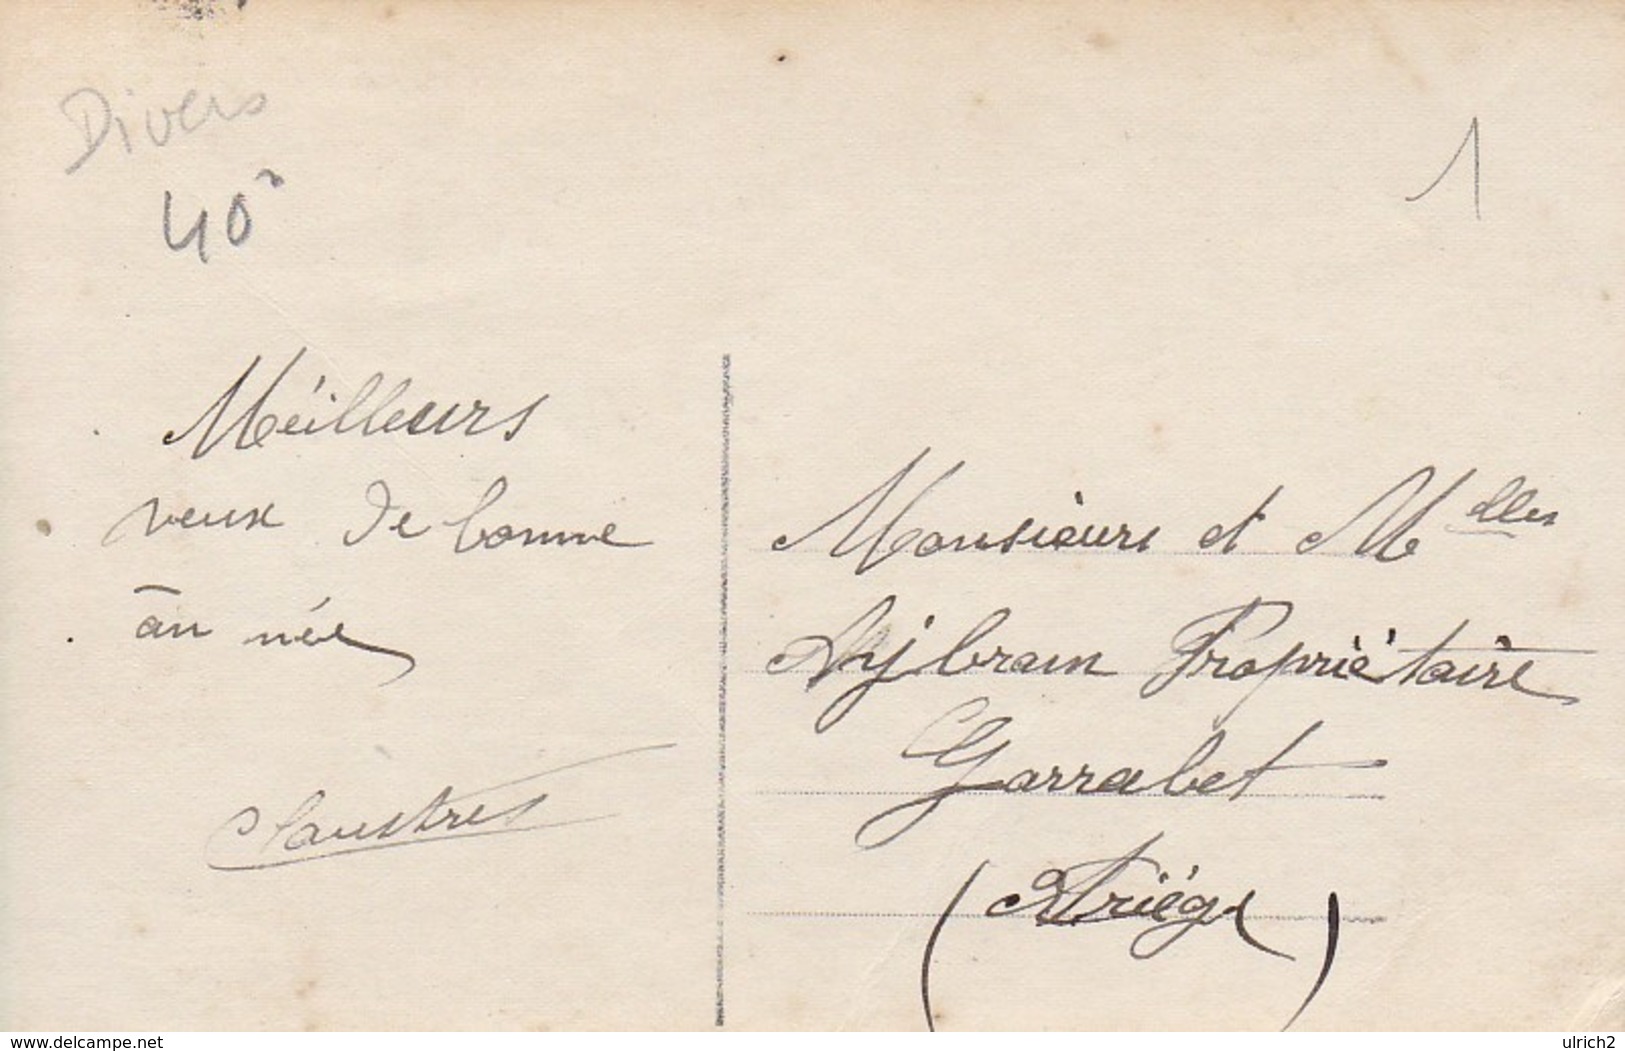 Divers
40
1
Méilleurs
veux de bonne
an née
Monsieurs et M elles
Propriétaire
Garrabet
(Ariége)
www.delcampe.net
ulrich2